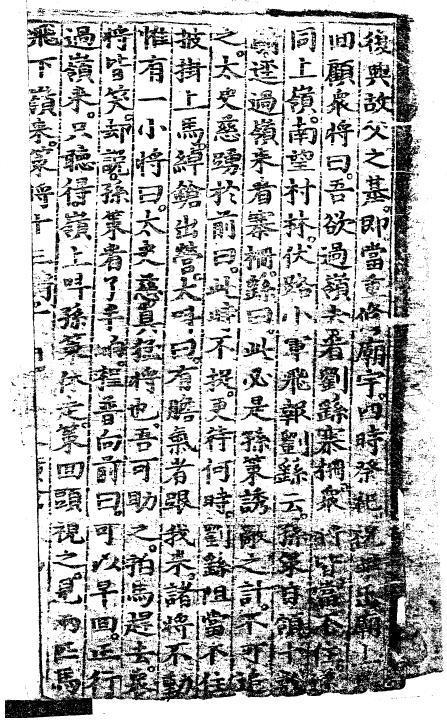 復興故父之基。即當重修廟宇。四時祭祀。祝畢出廟上
回顧衆將曰。吾欲過嶺去看劉繇寨柵。衆將皆當不住
同上嶺。南望村林。伏路小軍飛報劉繇云。孫策自領十數
過嶺來看寨柵。繇曰。此必是孫策誘敵之計。不可追
之。太史慈踴於前曰。此時不捉。更待何時。劉繇阻當不住
披掛上馬。綽鎗出營。大呌曰。有膽氣者跟我來。諸將不動
惟有一小將曰。太史慈眞猛將也。吾可助之。拍馬趕去。衆
將皆笑。却說孫策看了半晌。程普向前曰。可以早回。正行
過嶺來。只聽得嶺上呌孫策休走。策回頭視之。見兩匹馬
飛下嶺來。策將十三